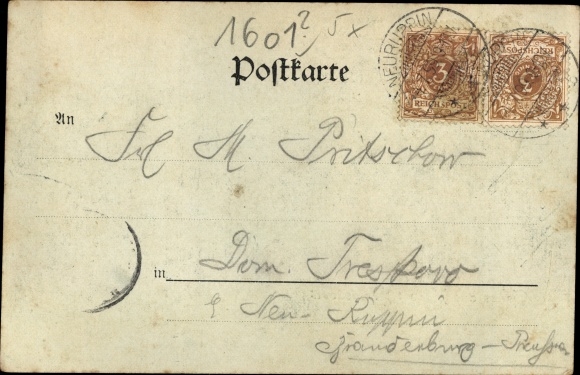 1601? 5x
NEURUPPIN
3 3
REICHSPOST REICHSPOST
Postkarte
An
Frl M. Pritschow
in Dom. Treskow
Neu-Ruppin
Brandenburg - Preussen